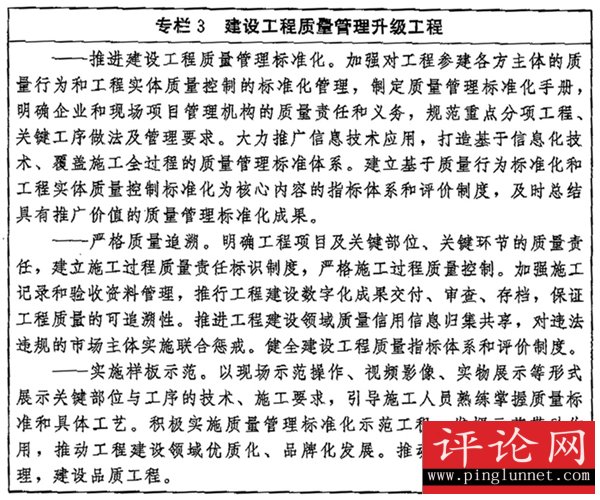 专栏 3 建设工程质量管理升级工程
——推进建设工程质量管理标准化。加强对工程参建各方主体的质
量行为和工程实体质量控制的标准化管理，制定质量管理标准化手册，
明确企业和现场项目管理机构的质量责任和义务，规范重点分项工程、
关键工序做法及管理要求。大力推广信息技术应用，打造基于信息化技
术、覆盖施工全过程的质量管理标准体系。建立基于质量行为标准化和
工程实体质量控制标准化为核心内容的指标体系和评价制度，及时总结
具有推广价值的质量管理标准化成果。
——严格质量追溯。明确工程项目及关键部位、关键环节的质量责
任，建立施工过程质量责任标识制度，严格施工过程质量控制。加强施工
记录和验收资料管理，推行工程建设数字化成果交付、审查、存档，保证
工程质量的可追溯性。推进工程建设领域质量信用信息归集共享，对违法
违规的市场主体实施联合惩戒。健全建设工程质量指标体系和评价制度。
——实施样板示范。以现场示范操作、视频影像、实物展示等形式
展示关键部位与工序的技术、施工要求，引导施工人员熟练掌握质量标
准和具体工艺。积极实施质量管理标准化示范工程，
用，推动工程建设领域优质化、品牌化发展。推动
理，建设品质工程。
评论网
www.pinglunnet.com